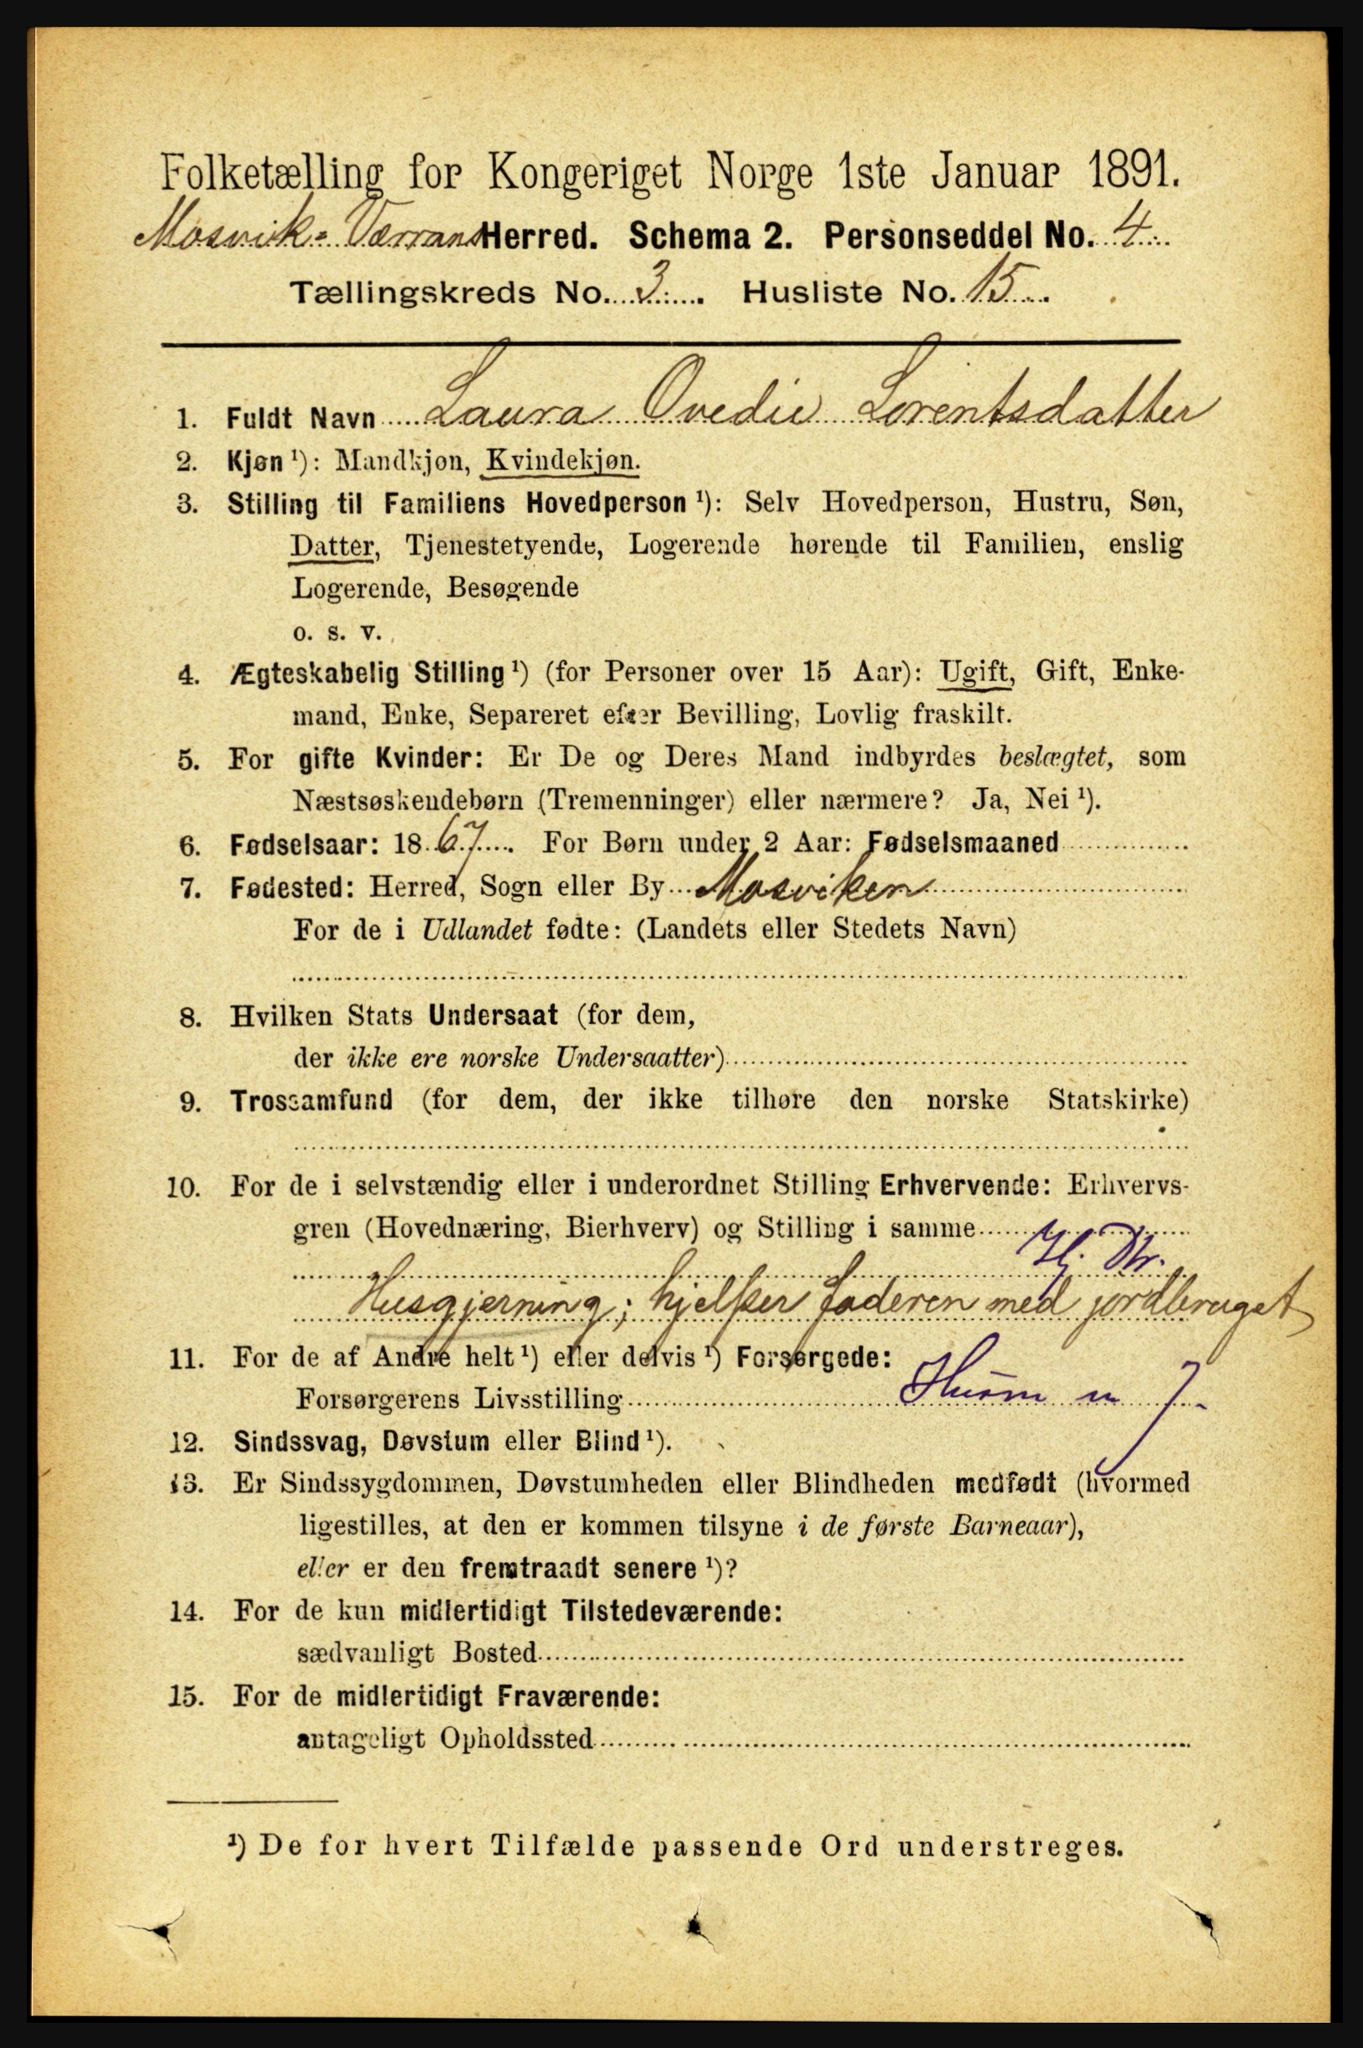 Folketælling for Kongeriget Norge 1ste Januar 1891.
Mosvik - Værrans Herred. Schema 2. Personseddel No. 4
Tællingskreds No. 3. Husliste No. 15.
1. Fuldt Navn Laura Ovedie Lorentsdatter
2. Kjøn ¹): Mandkjøn, Kvindekjøn.
3. Stilling til Familiens Hovedperson ¹): Selv Hovedperson, Hustru, Søn,
Datter, Tjenestetyende, Logerende hørende til Familien, enslig
Logerende, Besøgende
o. s. v.
4. Ægteskabelig Stilling ¹) (for Personer over 15 Aar): Ugift, Gift, Enke-
mand, Enke, Separeret efter Bevilling, Lovlig fraskilt.
5. For gifte Kvinder: Er De og Deres Mand indbyrdes beslægtet, som
Næstsøskendebørn (Tremenninger) eller nærmere? Ja, Nei ¹).
6. Fødselsaar: 1867. For Børn under 2 Aar: Fødselsmaaned
7. Fødested: Herred, Sogn eller By Mosviken
For de i Udlandet fødte: (Landets eller Stedets Navn)
8. Hvilken Stats Undersaat (for dem,
der ikke ere norske Undersaatter)
9. Trossamfund (for dem, der ikke tilhøre den norske Statskirke)
10. For de i selvstændig eller i underordnet Stilling Erhvervende: Erhvervs-
gren (Hovednæring, Bierhverv) og Stilling i samme
Hj. Dtr.
Husgjerning; hjelper faderen med jordbruget
11. For de af Andre helt ¹) eller delvis ¹) Forsørgede:
Forsørgerens Livsstilling Husm m J
12. Sindssvag, Døvstum eller Blind ¹).
13. Er Sindssygdommen, Døvstumheden eller Blindheden medfødt (hvormed
ligestilles, at den er kommen tilsyne i de første Barneaar),
eller er den fremtraadt senere ¹)?
14. For de kun midlertidigt Tilstedeværende:
sædvanligt Bosted
15. For de midlertidigt Fraværende:
antageligt Opholdssted
¹) De for hvert Tilfælde passende Ord understreges.